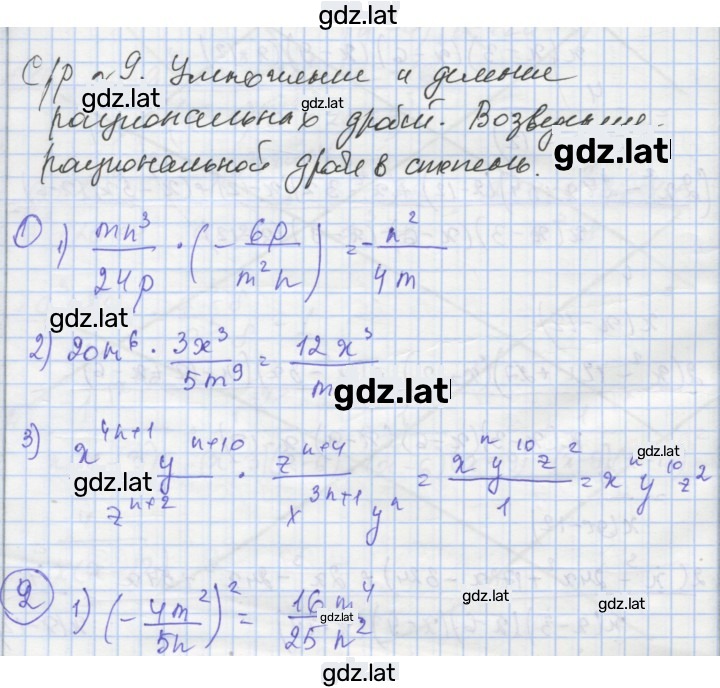 gdz.lat
С/р №9. Умножение и деление
gdz.lat
рациональных дробей. Возведение
gdz.lat
рациональной дроби в степень.
① 1) mn³/24p · (- 6p/m²n) = - n²/4m
gdz.lat
2) 20m⁶ · 3x³/5m⁹ = 12x³/m
gdz.lat
3) x⁴ⁿ⁺¹yⁿ⁺¹⁰/zⁿ⁺² · zⁿ⁺⁴/x³ⁿ⁺¹yⁿ = xⁿy¹⁰z²/1 = xⁿy¹⁰z²
gdz.lat gdz.lat
② 1) (- 4m²/5n)² = 16m⁴/25n²
gdz.lat gdz.lat gdz.lat
gdz.lat